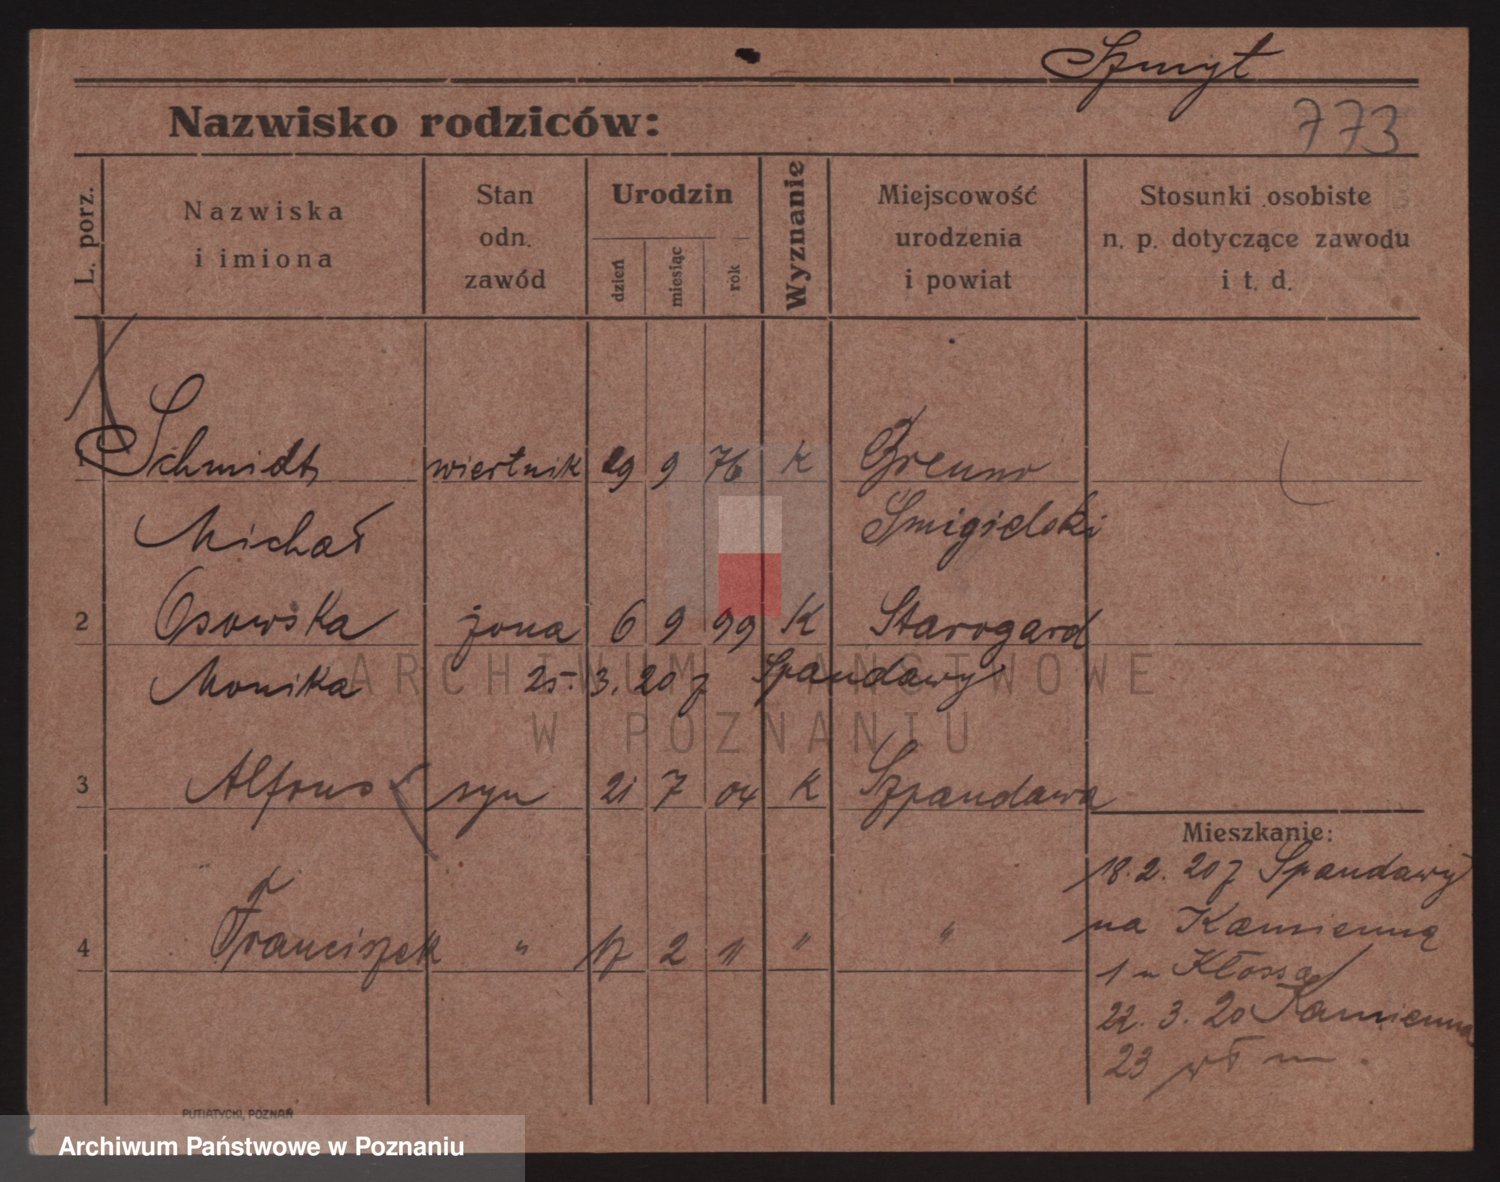 Szmyt
Nazwisko rodziców:
773
L. porz.
Nazwiska
i imiona
Stan
odn.
zawód
Urodzin
dzień
miesiąc
rok
Wyznanie
Miejscowość
urodzenia
i powiat
Stosunki osobiste
n. p. dotyczące zawodu
i t. d.
1 Schmidt wiertnik 29 9 76 K
Michał Smigielski
2 Osowska żona 6 9 99 K Starogard
Monika 25. 3. 20 z Spandawy
3 Alfons syn 21 7 04 K Szpandawa
Mieszkanie:
18. 2. 20 z Spandawy
4 Franciszek " 17 2 11 " "
na Kamienną
1 u Kłossa
22. 3. 20 Kamienna
23
PUTIATYCKI, POZNAŃ
ARCHIWUM PAŃSTWOWE
W POZNANIU
Archiwum Państwowe w Poznaniu